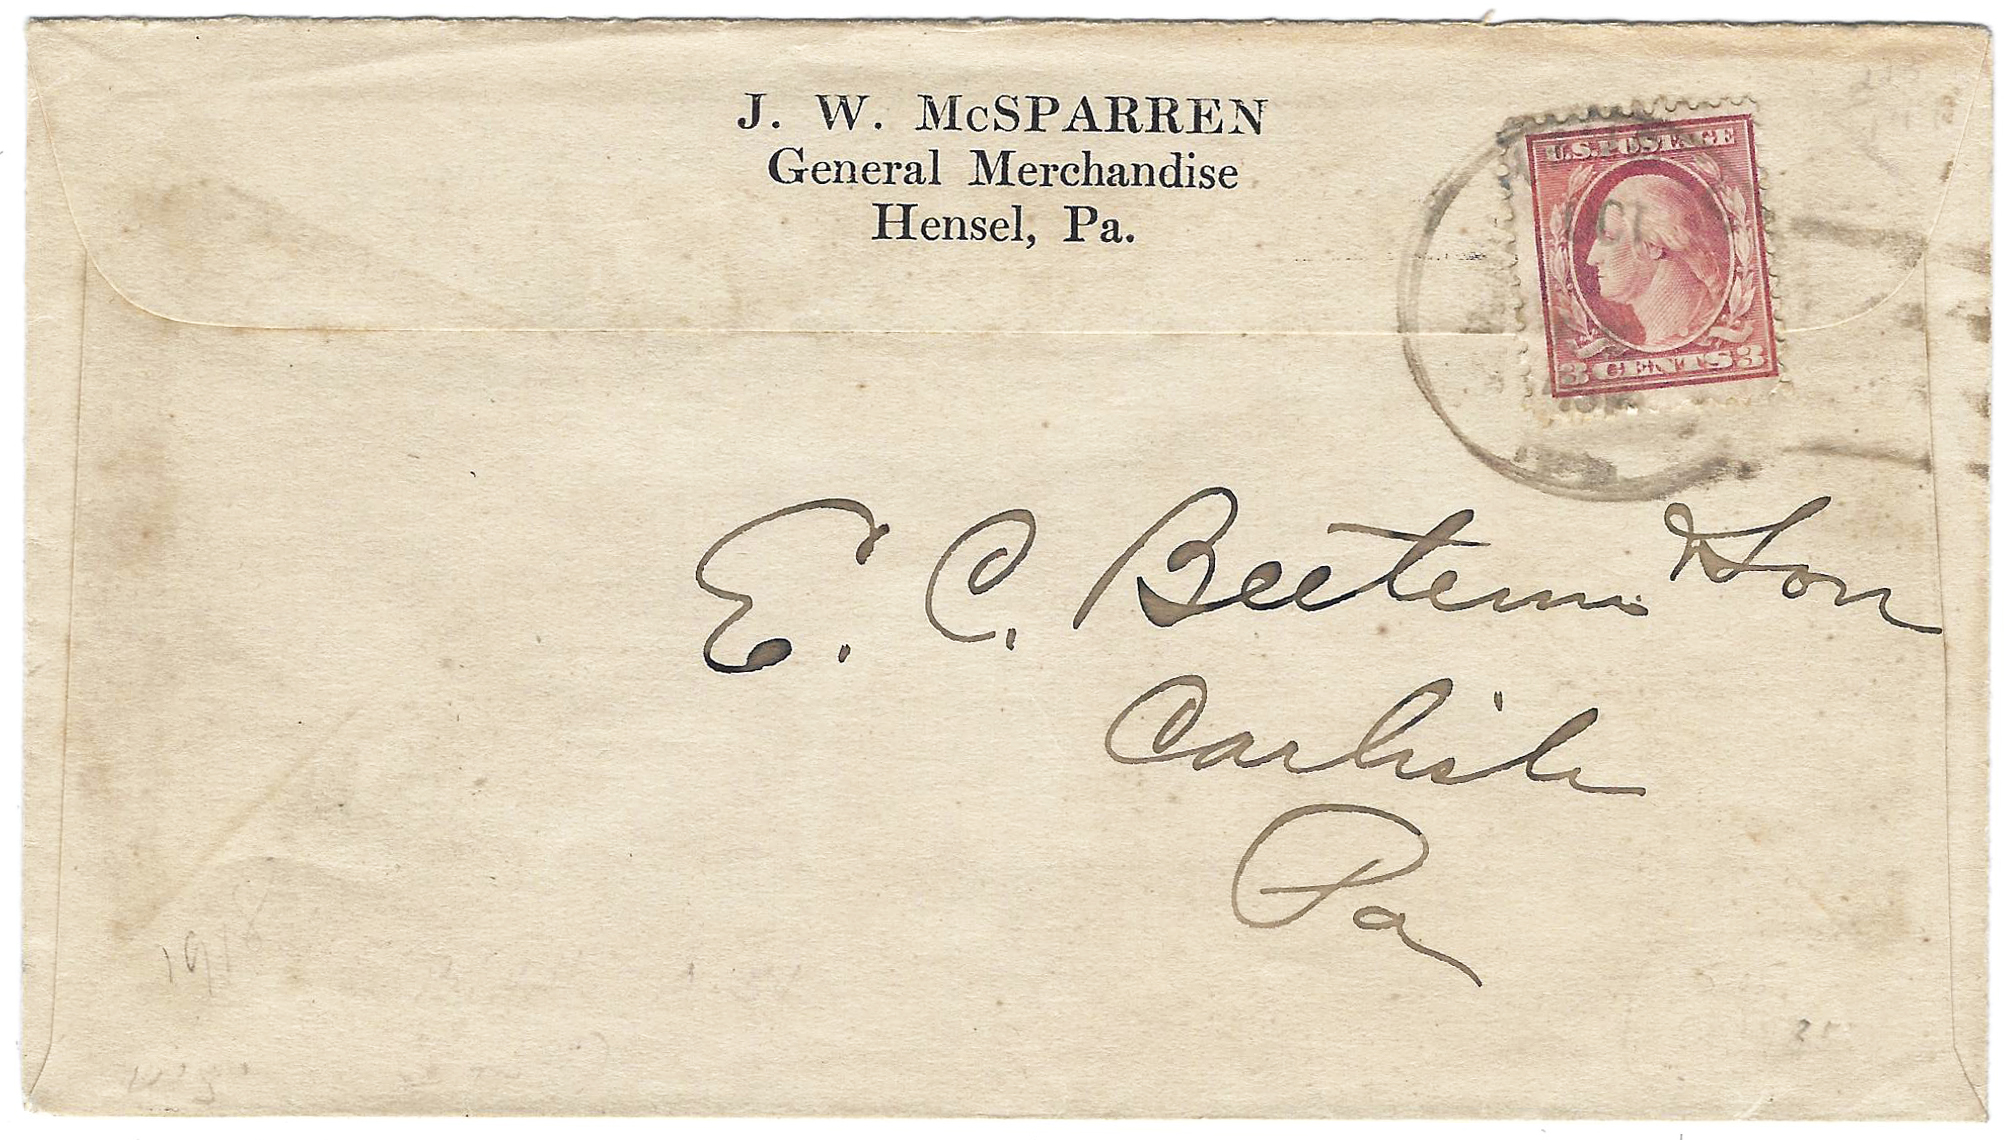 J. W. McSPARREN
General Merchandise
Hensel, Pa.
U.S. POSTAGE
3 CENTS 3
E. C. Beetem & Son
Carlisle
Pa
1918